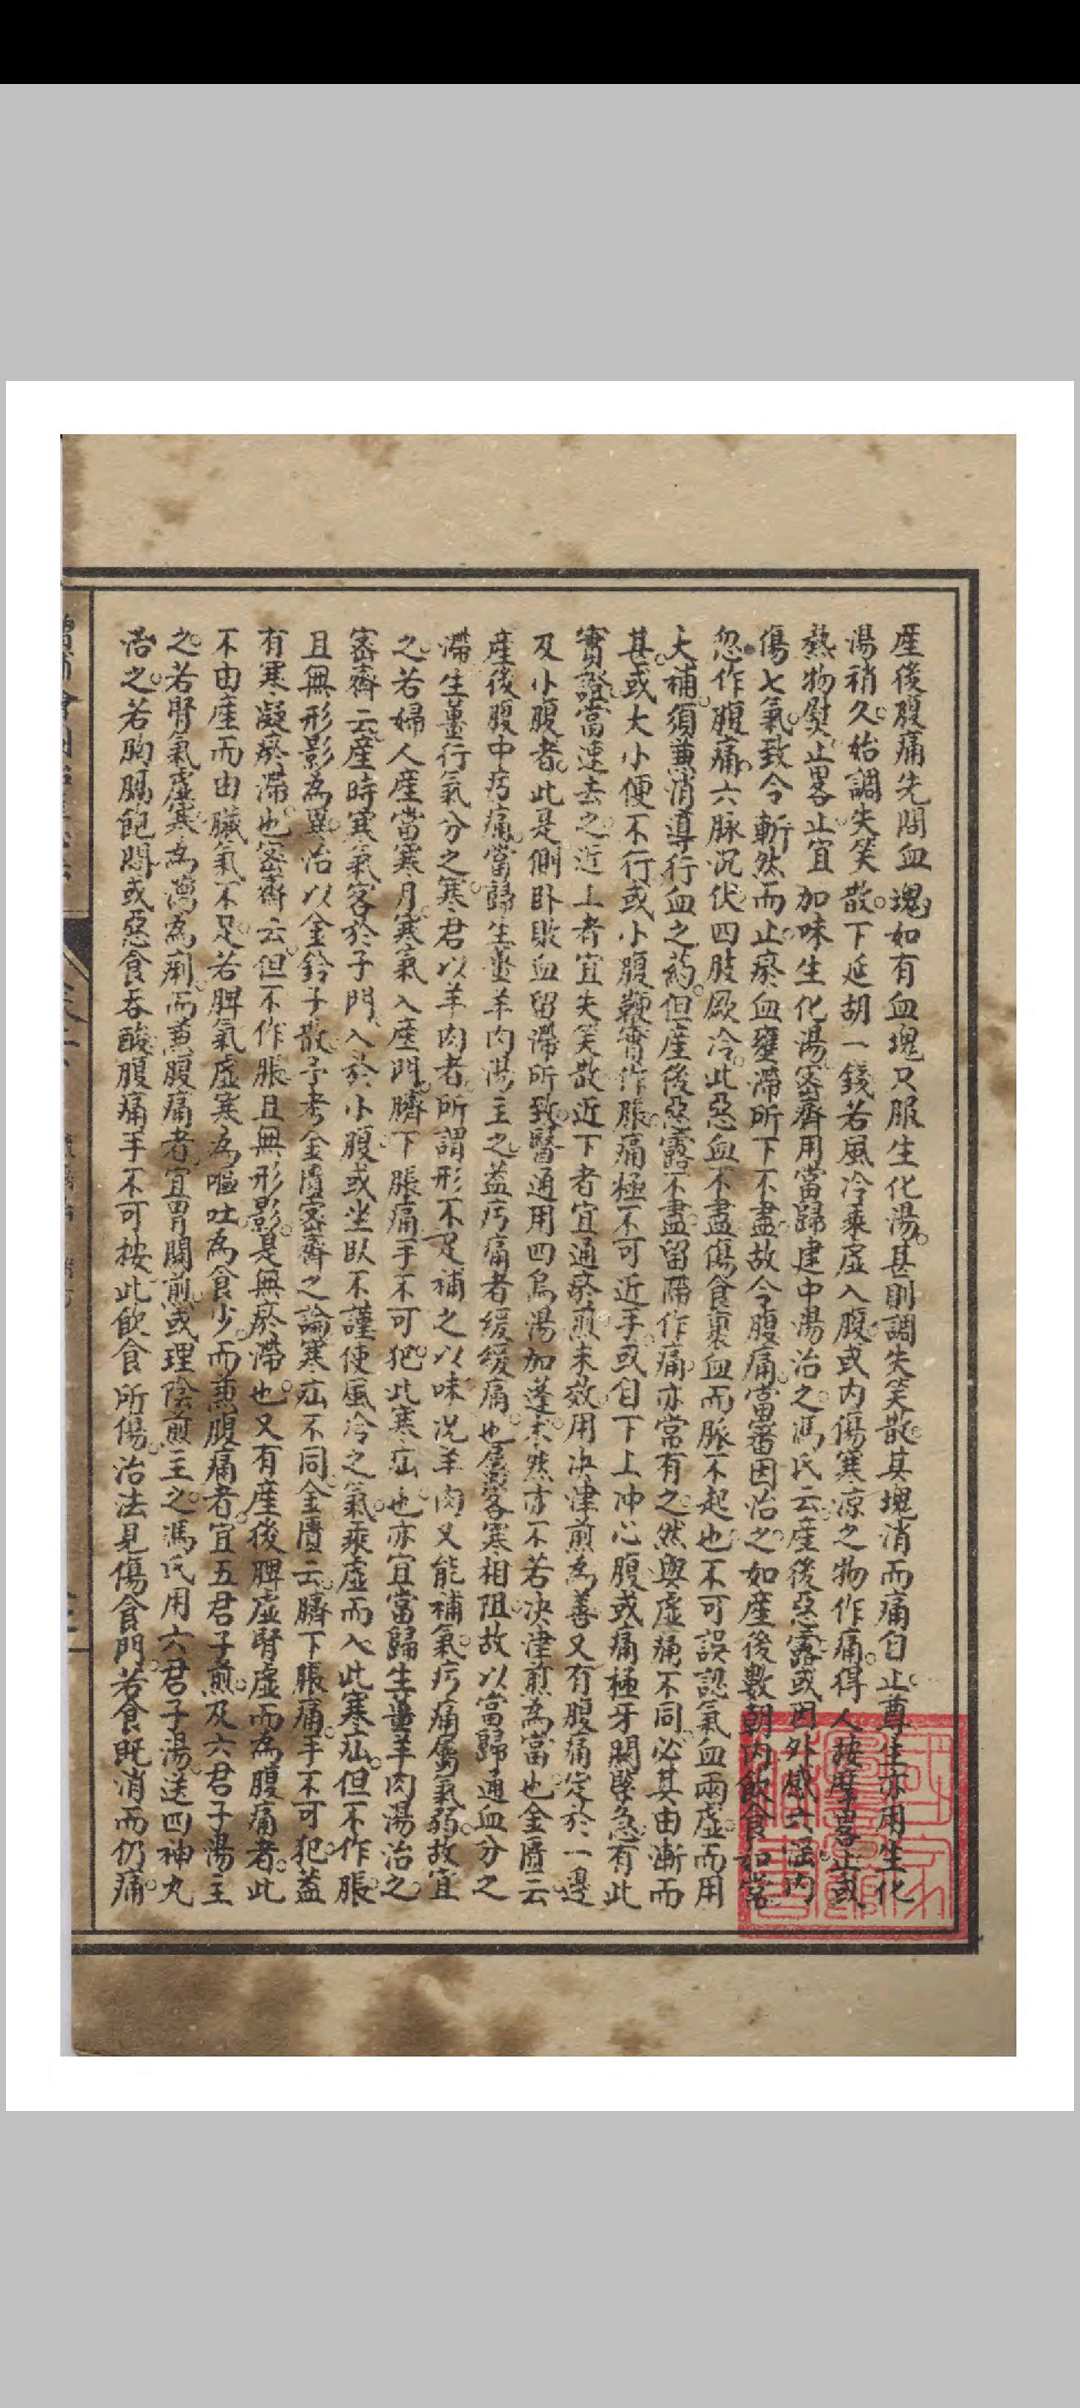 產後腹痛先問血塊如有血塊只服生化湯甚則調失笑散其塊消而痛自止尊生亦用生化
湯稍久始調失笑散下延胡一錢若風冷乘虛入腹或內傷寒凉之物作痛得人按摩畧止或
熱物熨止畧止宜加味生化湯密齋用當歸建中湯治之馮氏云產後惡露或因外感六淫內
傷七氣致令斬然而止瘀血壅滯所下不盡故令腹痛當審因治之如產後數朝內飲食如常
忽作腹痛六脉沉伏四肢厥冷此惡血不盡傷食裹血而脈不起也不可誤認氣血兩虛而用
大補須兼消導行血之药但產後惡露不盡留滯作痛亦常有之然與虛痛不同必其由漸而
甚或大小便不行或小腹鞭實作脹痛極不可近手或自下上冲心腹或痛極牙關緊急有此
實證當速去之近上者宜失笑散近下者宜通瘀煎未效用决津煎為善又有腹痛定於一邊
及小腹者此是側卧敗血留滯所致醫通用四烏湯加蓬朮然亦不若决津煎為當也金匱云
產後腹中㽲痛當歸生薑羊肉湯主之蓋㽲痛者緩緩痛也屬客寒相阻故以當歸通血分之
滯生薑行氣分之寒君以羊肉者所謂形不足補之以味况羊肉又能補氣㽲痛屬氣弱故宜
之若婦人產當寒月寒氣入產門臍下脹痛手不可犯此寒疝也亦宜當歸生薑羊肉湯治之
密齋云產時寒氣客於子門入於小腹或坐臥不謹使風冷之氣乘虛而入此寒疝但不作脹
且無形影為異治以金鈴子散予考金匱密齋之論寒疝不同金匱云臍下脹痛手不可犯蓋
有寒凝瘀滯也密齋云但不作脹且無形影是無瘀滯也又有產後脾虛腎虛而為腹痛者此
不由產而由臟氣不足若脾氣虛寒為嘔吐為食少而兼腹痛者宜五君子煎及六君子湯主
之若腎氣虛寒為瀉為痢而兼腹痛者宜胃關煎或理陰煎主之馮氏用六君子湯送四神丸
治之若胸膈飽悶或惡食吞酸腹痛手不可按此飲食所傷治法見傷食門若食既消而仍痛